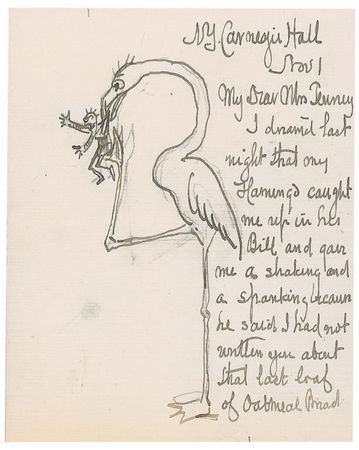 N.Y. Carnegie Hall
Nov 1
My Dear Mrs Tenney
I dreamed last
night that my
Flamingo caught
me up in his
Bill and gave
me a shaking and
a spanking because
he said I had not
written you about
that last loaf
of Oatmeal Bread